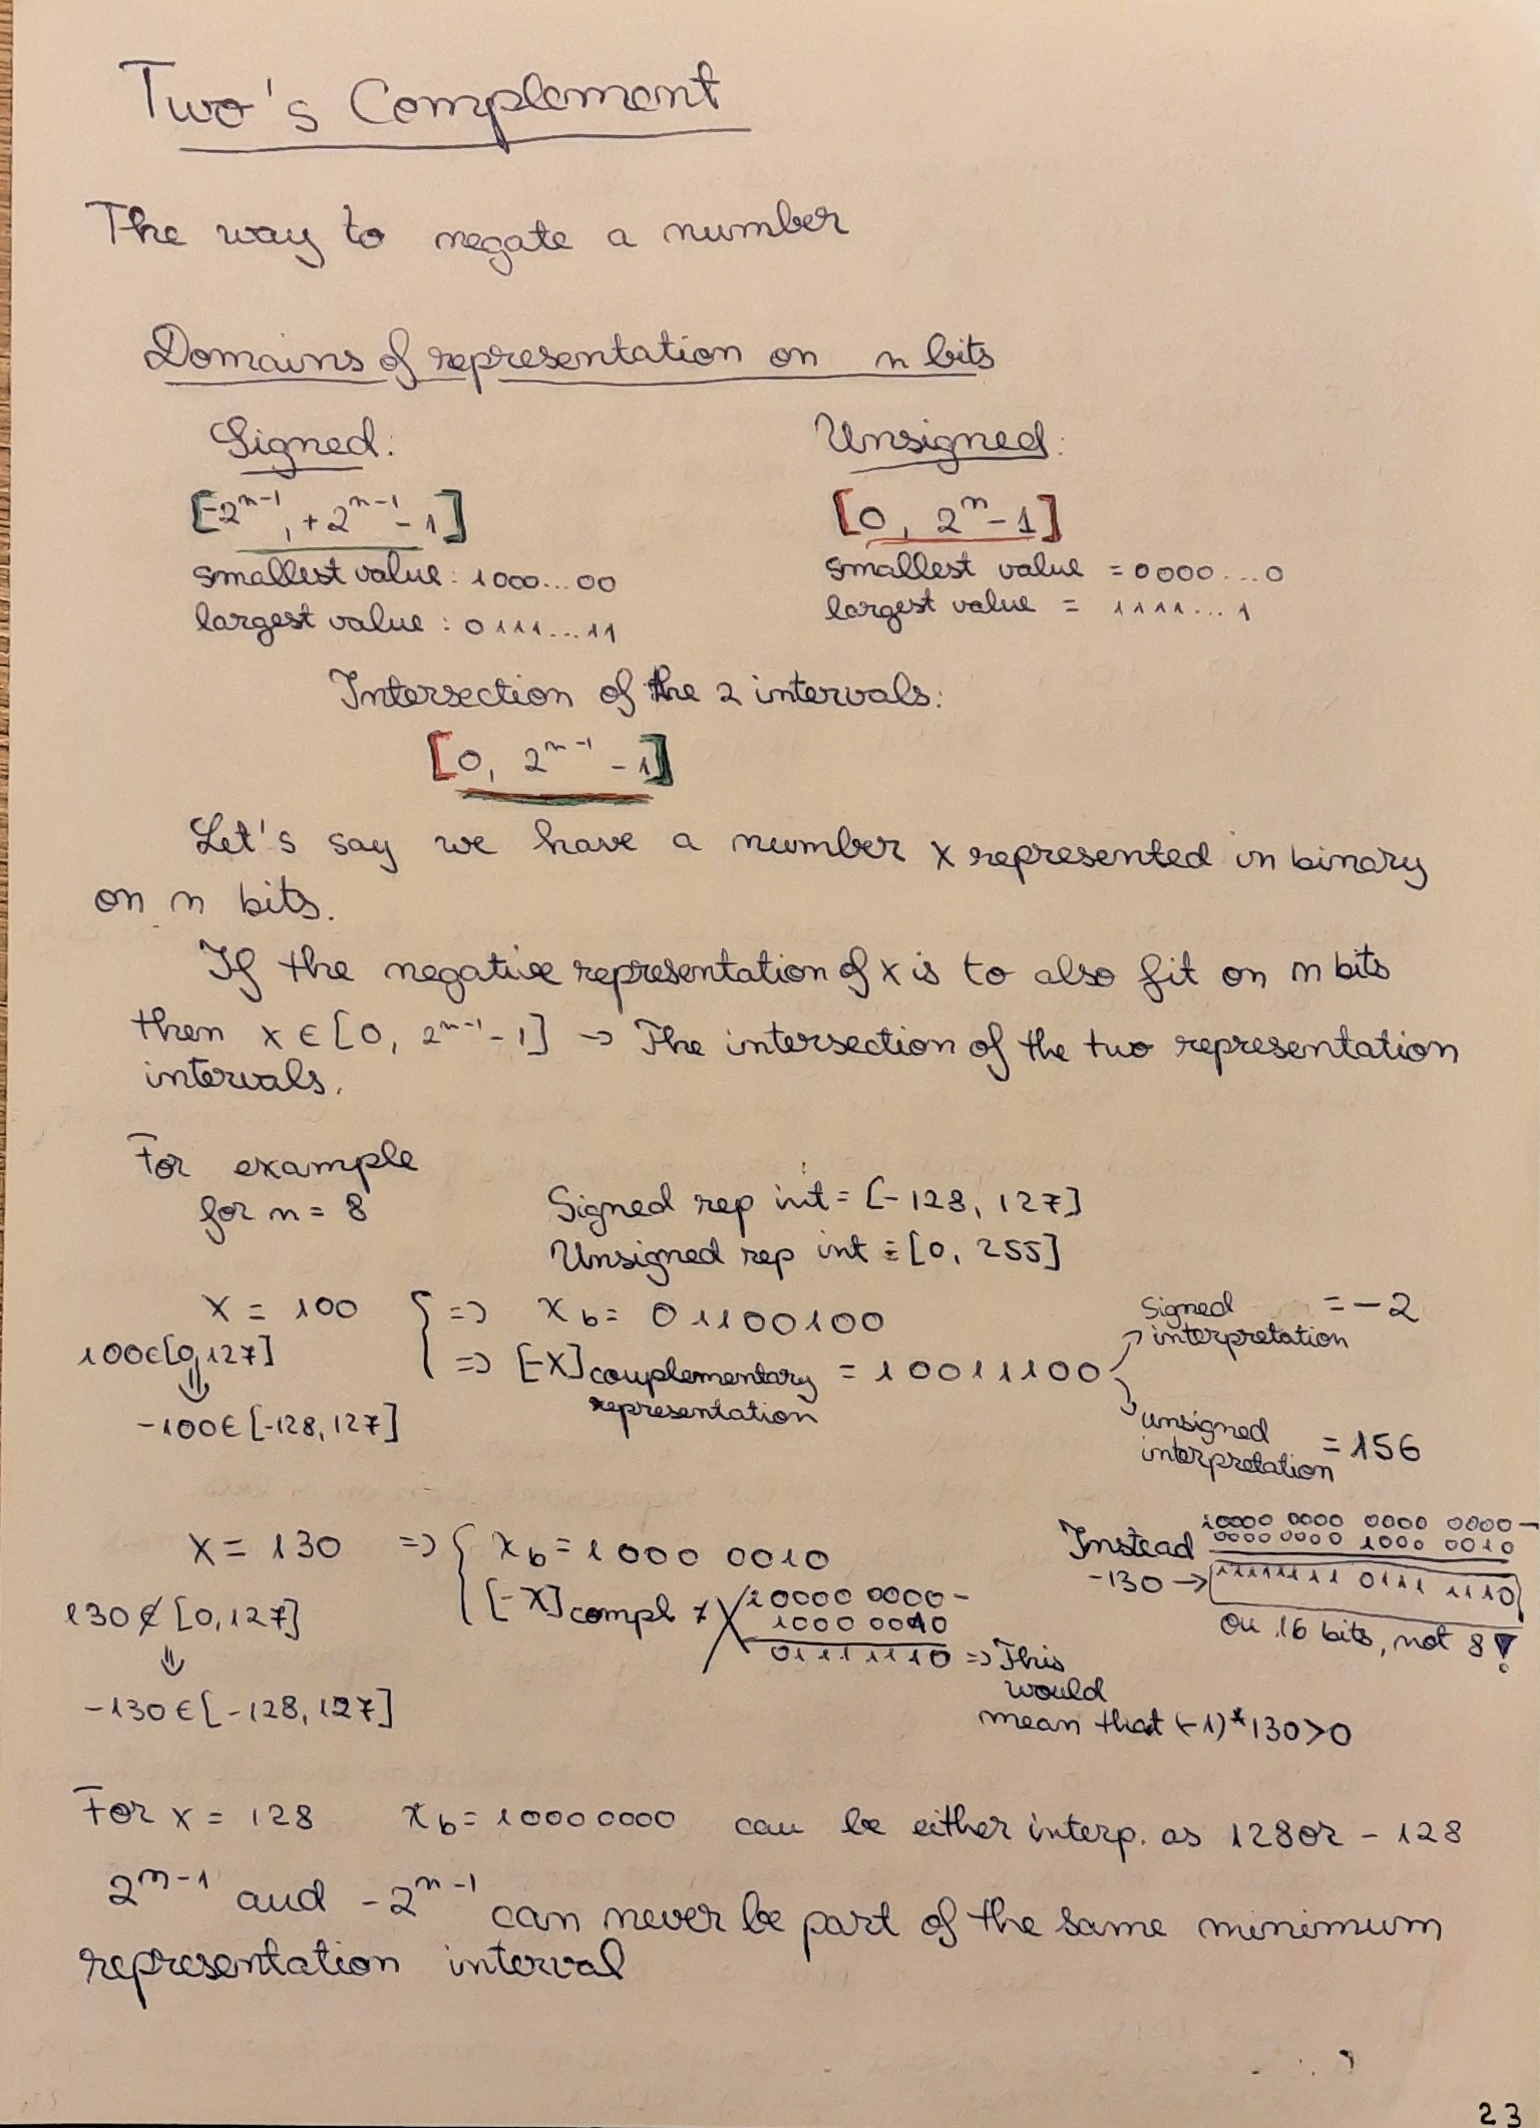 Two's Complement
The way to negate a number
Domains of representation on n bits
Signed:
[-2^{n-1}, +2^{n-1}-1]
smallest value: 1000...00
largest value: 0111...11
Unsigned:
[0, 2^n-1]
smallest value = 0000...0
largest value = 1111...1
Intersection of the 2 intervals:
[0, 2^{n-1}-1]
Let's say we have a number x represented in binary
on n bits.
If the negative representation of x is to also fit on n bits
then x ∈ [0, 2^{n-1}-1] → The intersection of the two representation
intervals.
For example
for n = 8
Signed rep int = [-128, 127]
Unsigned rep int = [0, 255]
x = 100
100 ∈ [0, 127]
⇓
-100 ∈ [-128, 127]
{ => x_b = 01100100
=> [-x] complementary = 10011100
representation
signed = -2
interpretation
unsigned = 156
interpretation
x = 130 => { x_b = 1000 0010
130 ∉ [0, 127]
⇓
-130 ∈ [-128, 127]
[-x] compl ≠ 10000 0000 -
1000 0010
01111110 => This
would
mean that (-1)*130>0
Instead 10000 0000 0000 0000 -
0000 0000 1000 0010
-130 → 11111111 0111 1110
on 16 bits, not 8!
For x = 128 x_b = 10000000 can be either interp. as 128 or -128
2^{n-1} and -2^{n-1} can never be part of the same minimum
representation interval
23